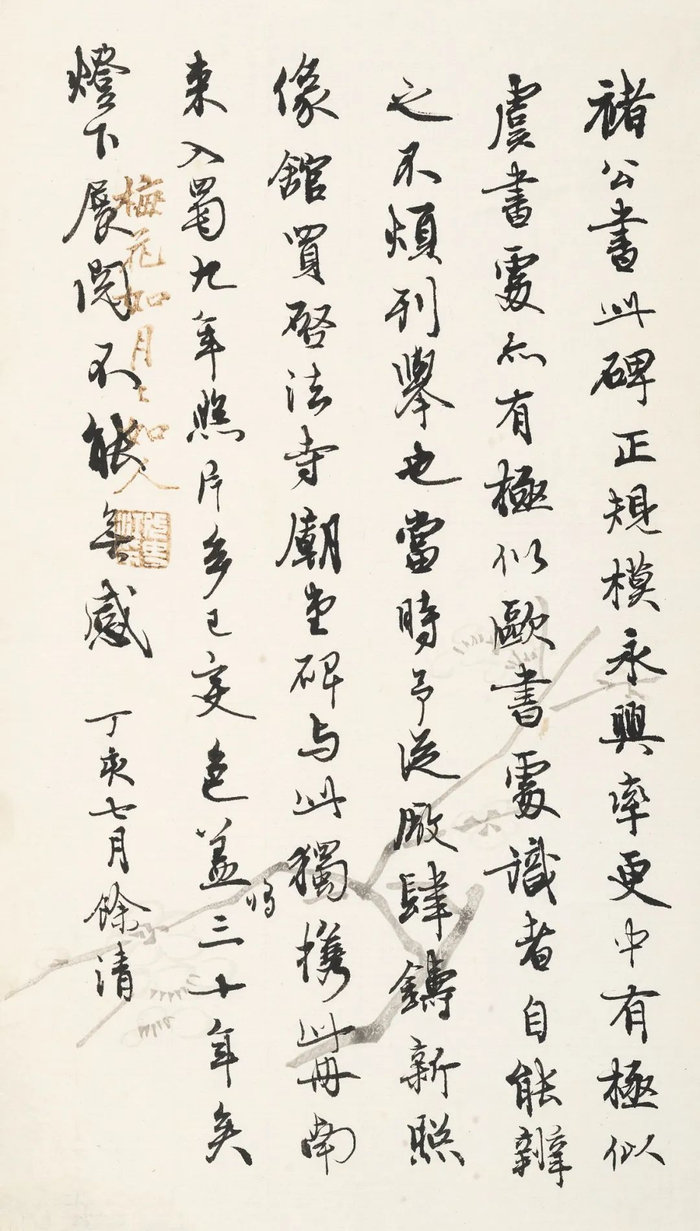 褚公書此碑正規模永興率更中有極似
虞書處亦有極似歐書處識者自能辨
之不煩列舉也當時予從廠肆鑄新照
像館買啓法寺廟堂碑与此獨攜此冊南
來入蜀九年照片多已变色蓋三十年矣
燈下展閱不能無感 丁亥七月餘清
梅花如月々如人